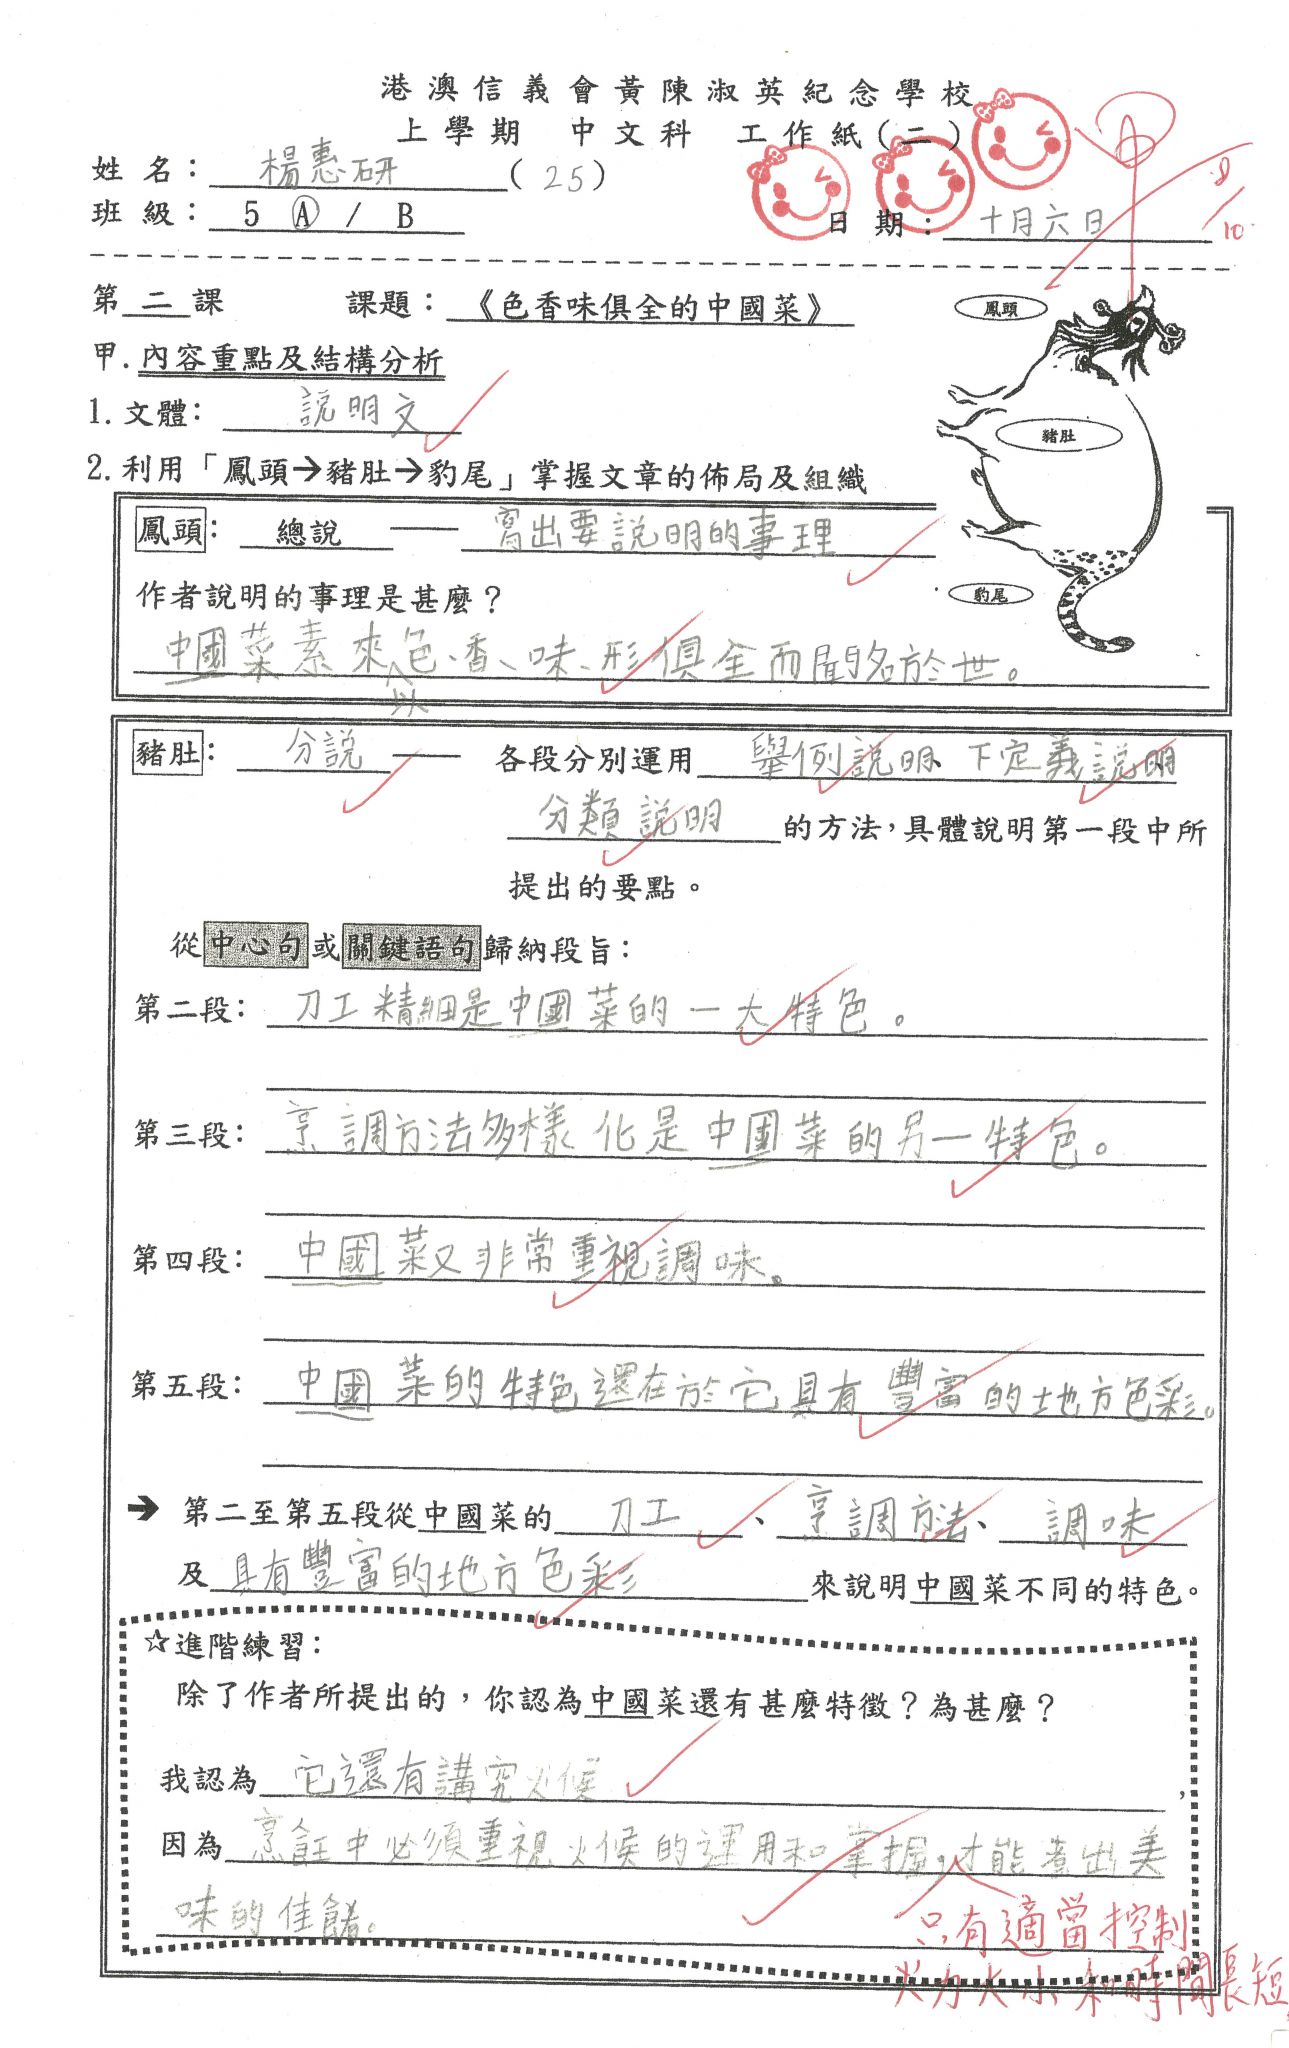 港澳信義會黃陳淑英紀念學校
上學期 中文科 工作紙(二)
姓名： 楊惠研 (25)
班級： 5 A / B 日期： 十月六日
8/10
第二課 課題：《色香味俱全的中國菜》
鳳頭
甲.內容重點及結構分析
1.文體： 說明文
豬肚
2.利用「鳳頭→豬肚→豹尾」掌握文章的佈局及組織
鳳頭： 總說 —— 寫出要說明的事理
作者說明的事理是甚麼？
豹尾
中國菜素來色、香、味、形俱全而聞名於世。
以
豬肚： 分說 —— 各段分別運用 舉例說明、下定義說明
分類說明 的方法，具體說明第一段中所
提出的要點。
從中心句或關鍵語句歸納段旨：
第二段： 刀工精細是中國菜的一大特色。
第三段： 烹調方法多樣化是中國菜的另一特色。
第四段： 中國菜又非常重視調味。
第五段： 中國菜的特色還在於它具有豐富的地方色彩。
→ 第二至第五段從中國菜的 刀工 、 烹調方法、 調味
及 具有豐富的地方色彩 來說明中國菜不同的特色。
☆進階練習：
除了作者所提出的，你認為中國菜還有甚麼特徵？為甚麼？
我認為 它還有講究火候 ，
因為 烹飪中必須重視火候的運用和掌握，才能煮出美
味的佳餚。
只有適當控制
火力大小和時間長短，